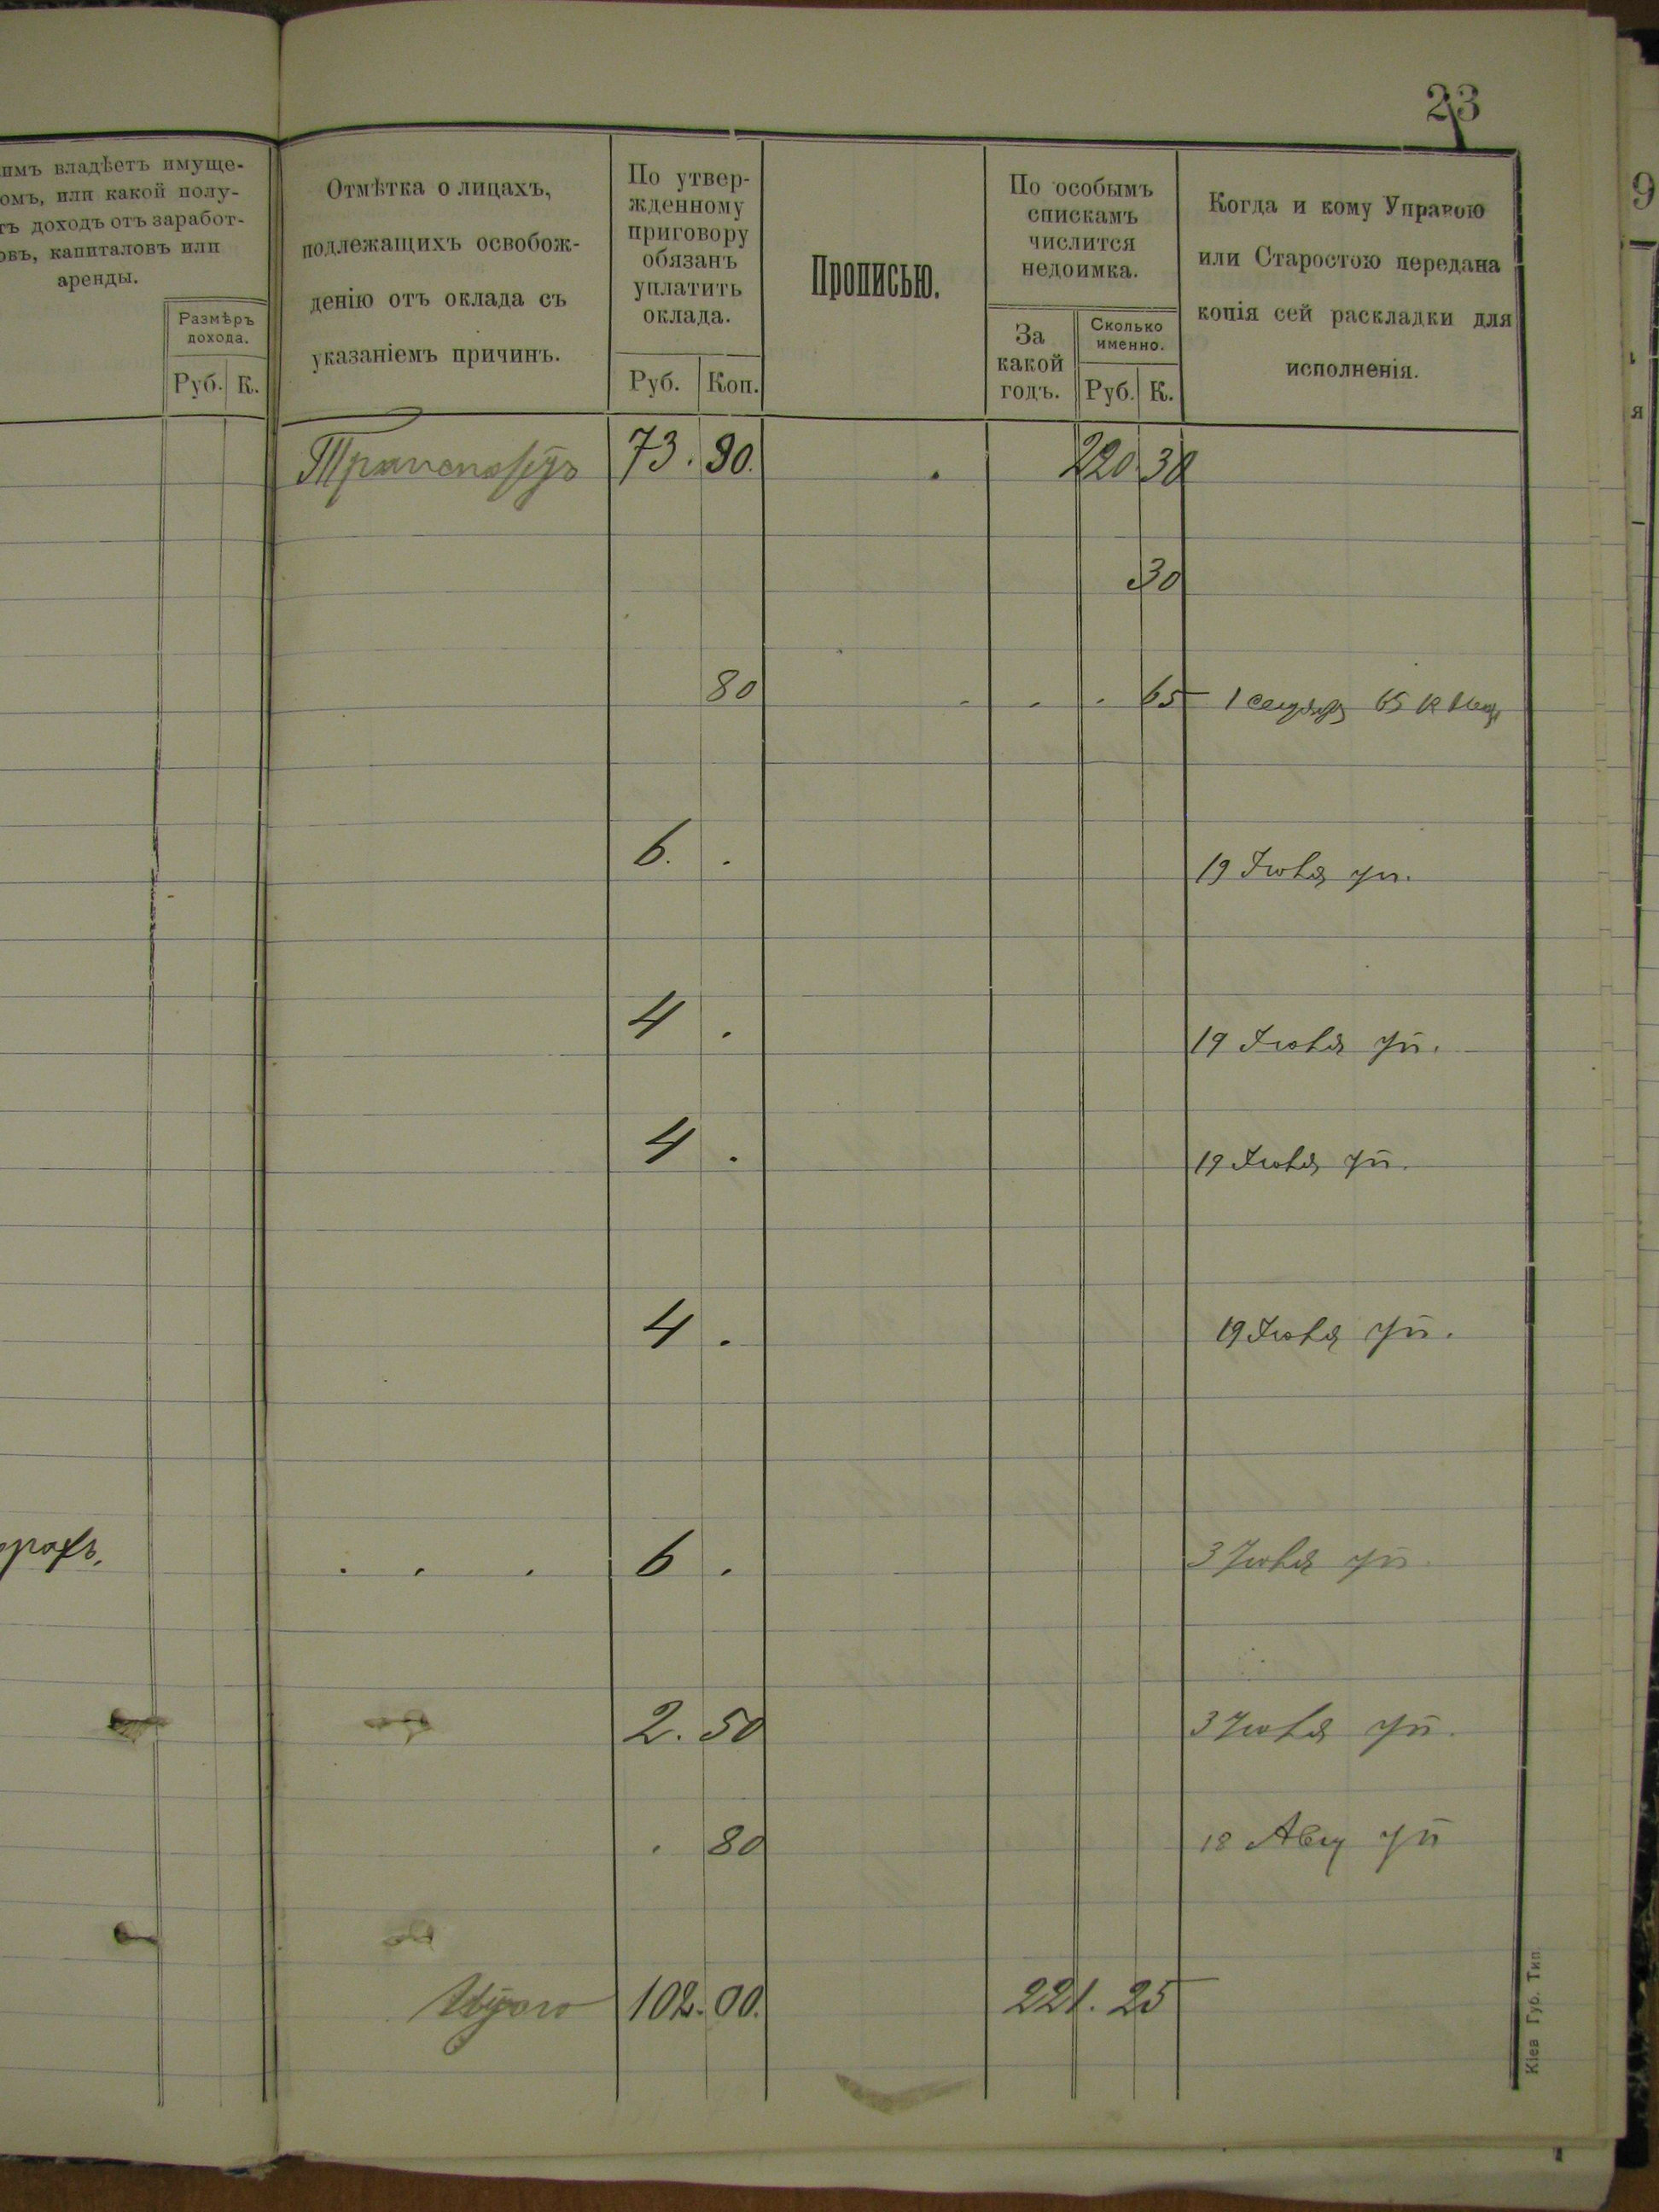 23
имъ владѣетъ имуще-
омъ, или какой полу-
тъ доходъ отъ заработ-
овъ, капиталовъ или
аренды.
Размѣръ
дохода.
Руб. К.
Отмѣтка о лицахъ,
подлежащихъ освобож-
денію отъ оклада съ
указаніемъ причинъ.
По утвер-
жденному
приговору
обязанъ
уплатить
оклада.
Руб. Коп.
Прописью.
По особымъ
спискамъ
числится
недоимка.
За
какой
годъ.
Сколько
именно.
Руб. К.
Когда и кому Управою
или Старостою передана
копія сей раскладки для
исполненія.
9
я
Транспортъ 73. 90. 220 30
30
80 65 1 сентября 65 к
6. . 19 Іюля уп.
4 . 19 Іюля уп.
4 . 19 Іюля уп.
4 . 19 Іюля уп.
6 . 3 Іюля уп.
2. 50 3 Іюля уп.
. 80 18 Авгу уп
Итого 102. 00. 221. 25
Кіев Губ. Тип.